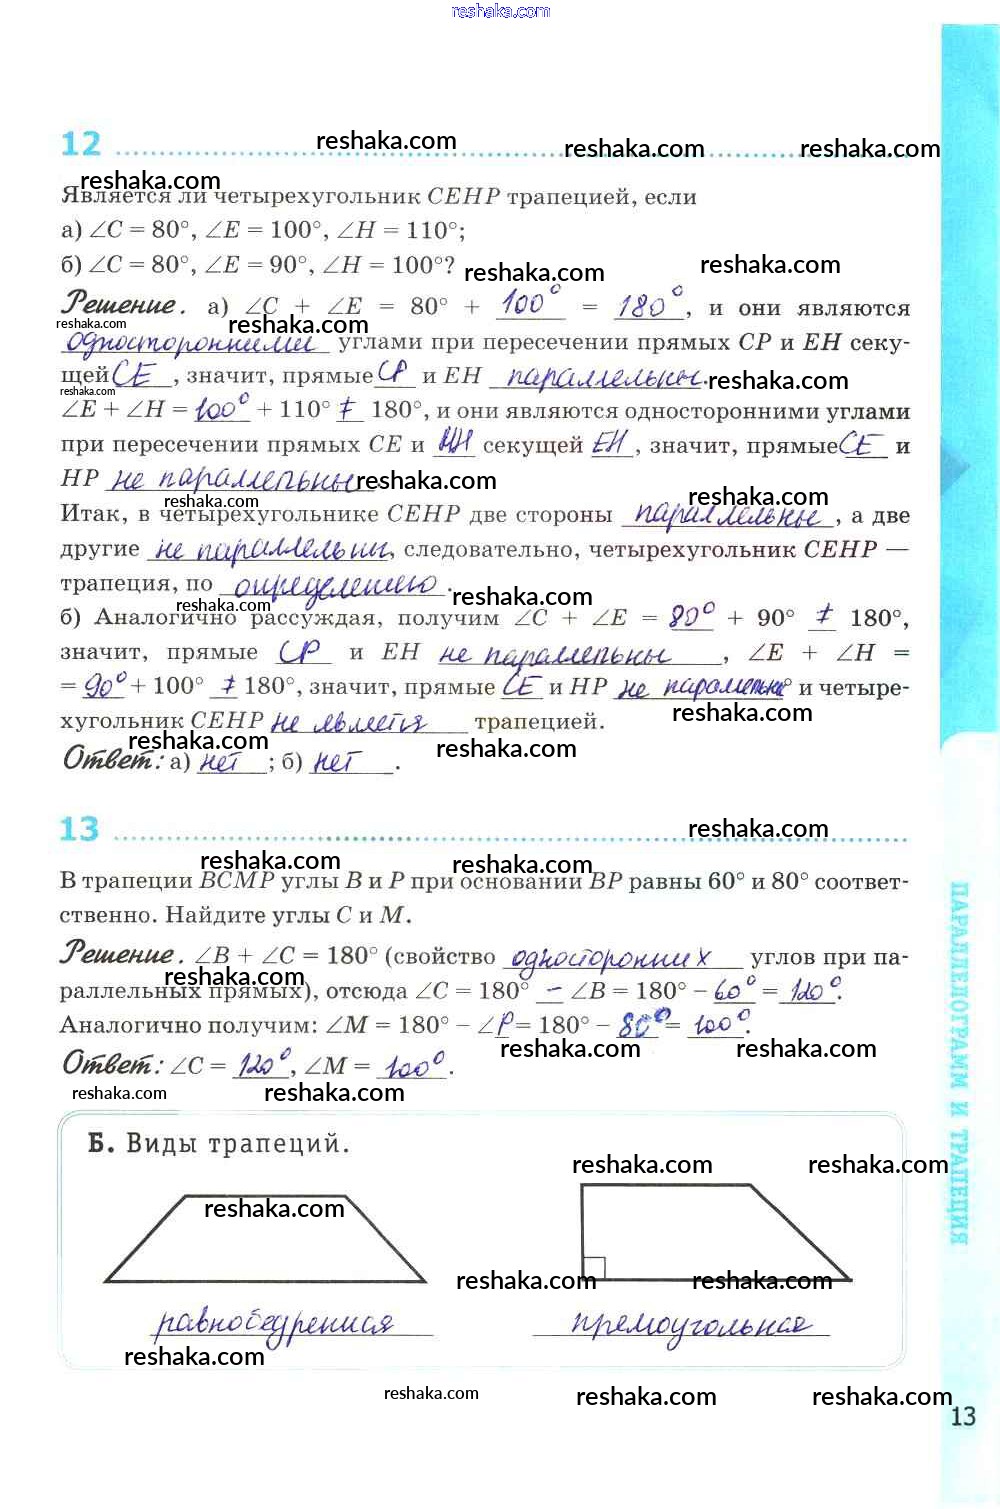 reshaka.com
12
reshaka.com
reshaka.com reshaka.com
reshaka.com
Является ли четырехугольник CEHP трапецией, если
а) ∠C = 80°, ∠E = 100°, ∠H = 110°;
б) ∠C = 80°, ∠E = 90°, ∠H = 100°?
reshaka.com reshaka.com
Решение. а) ∠C + ∠E = 80° + 100° = 180°, и они являются
reshaka.com reshaka.com
односторонними углами при пересечении прямых CP и EH секу-
щей CE, значит, прямые CP и EH параллельны.
reshaka.com reshaka.com
∠E + ∠H = 100° + 110° ≠ 180°, и они являются односторонними углами
при пересечении прямых CE и секущей EH, значит, прямые CE и
reshaka.com
HP не параллельны
reshaka.com reshaka.com
Итак, в четырехугольнике CEHP две стороны параллельны, а две
другие не параллельны, следовательно, четырехугольник CEHP —
трапеция, по определению.
reshaka.com reshaka.com
б) Аналогично рассуждая, получим ∠C + ∠E = 80° + 90° ≠ 180°,
значит, прямые CP и EH не параллельны, ∠E + ∠H =
= 90° + 100° ≠ 180°, значит, прямые CE и HP не параллельны и четыре-
reshaka.com
хугольник CEHP не является трапецией.
reshaka.com reshaka.com
Ответ: а) нет; б) нет.
13
reshaka.com
reshaka.com reshaka.com
В трапеции BCMP углы B и P при основании BP равны 60° и 80° соответ-
ственно. Найдите углы C и M.
Решение. ∠B + ∠C = 180° (свойство односторонних углов при па-
reshaka.com
раллельных прямых), отсюда ∠C = 180° − ∠B = 180° − 60° = 120°.
Аналогично получим: ∠M = 180° − ∠P = 180° − 80° = 100°.
reshaka.com reshaka.com
Ответ: ∠C = 120°, ∠M = 100°.
reshaka.com reshaka.com
Б. Виды трапеций.
reshaka.com reshaka.com
reshaka.com
reshaka.com reshaka.com
равнобедренная прямоугольная
reshaka.com
reshaka.com reshaka.com reshaka.com
ПАРАЛЛЕЛОГРАММ И ТРАПЕЦИЯ
13